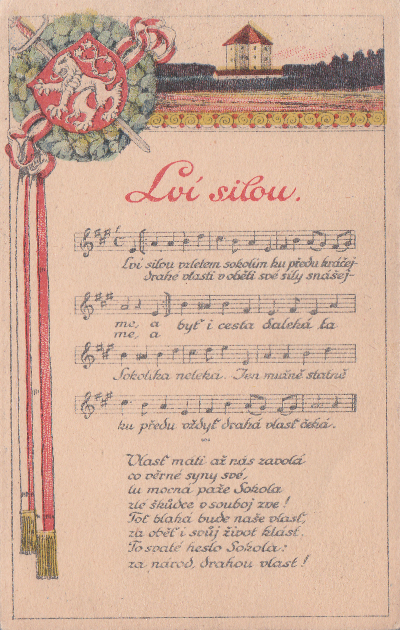 Lví silou.
Lví silou vzletem sokolím ku předu kráčej-
drahé vlasti v oběti své síly snášej-
me, a byť i cesta daleká ta
me, a
Sokolíka neleká. Jen mužně statně
ku předu vždyť drahá vlasť čeká.
Vlasť máti až nás zavolá
co věrné syny své,
tu mocná páže Sokola
zlé škůdce v souboj zve!
Toť blahá bude naše vlasť,
za oběť i svůj život klásť.
To svaté heslo Sokola:
za národ, drahou vlast!